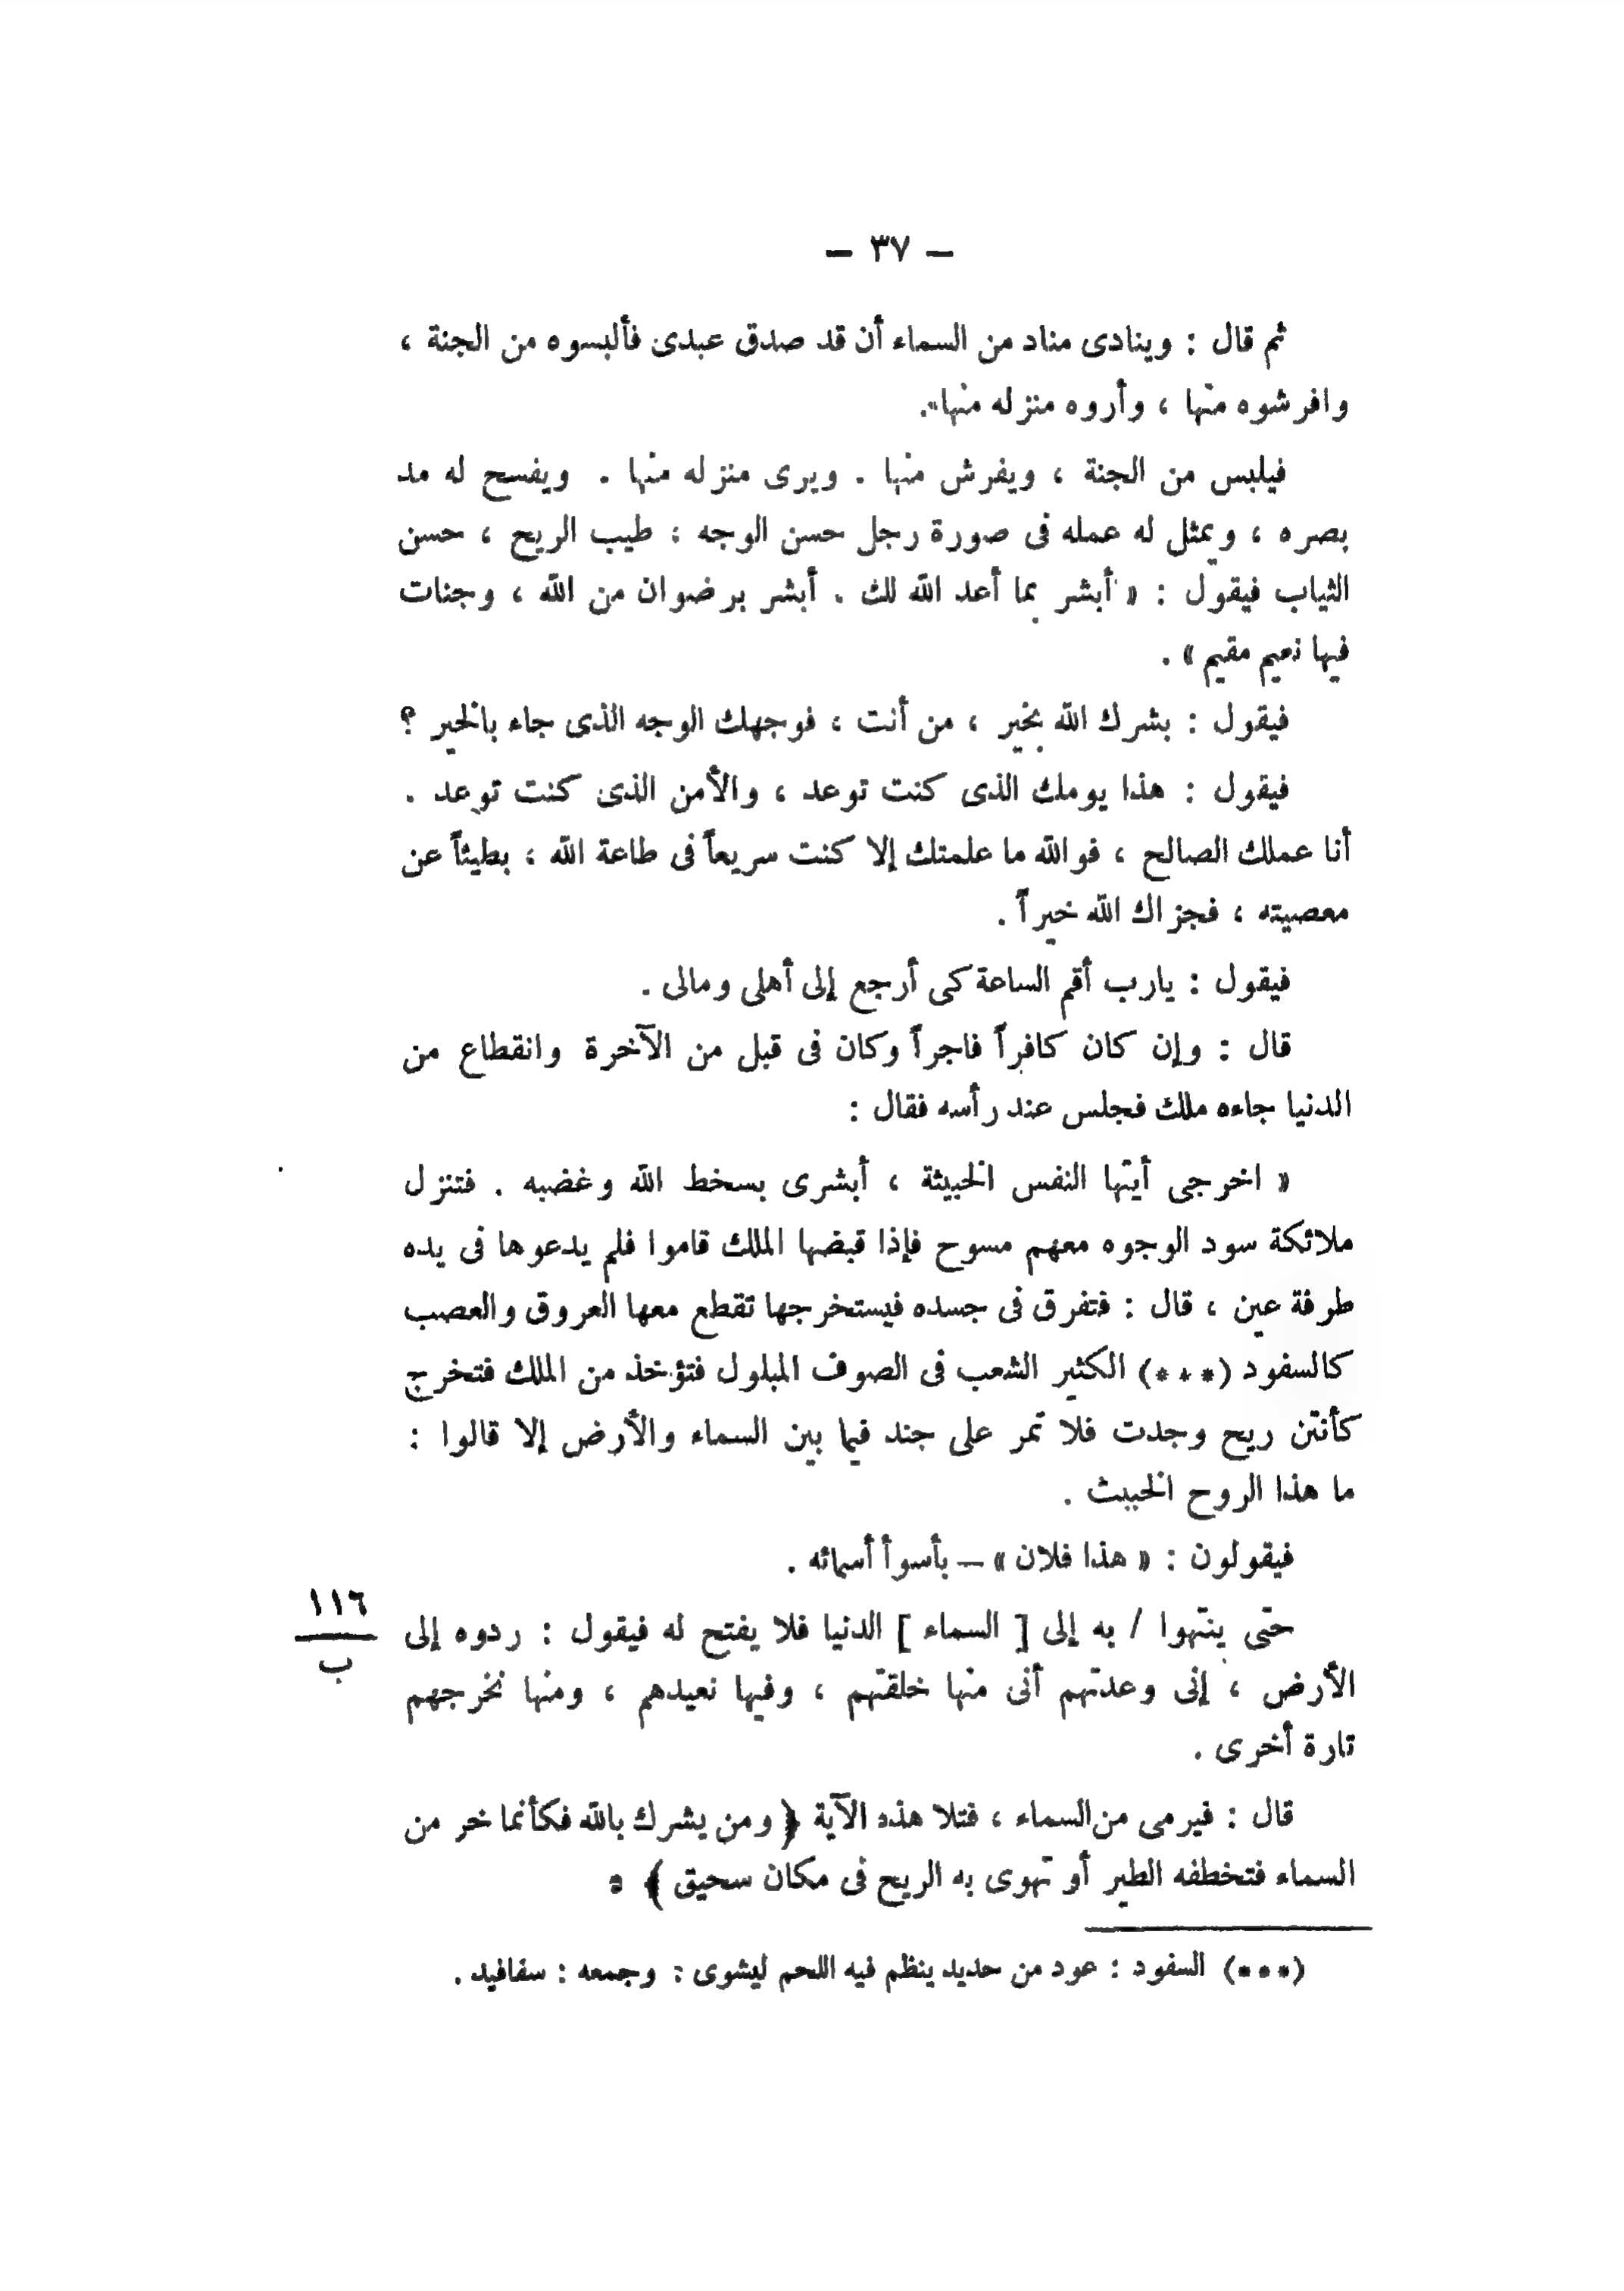 — ٣٧ —
ثم قال : وينادى مناد من السماء أن قد صدق عبدى فألبسوه من الجنة ،
وافرشوه منها ، وأروه منزله منها .
فيلبس من الجنة ، ويفرش منها . ويرى منزله منها . ويفسح له مد
بصره ، ويمثل له عمله فى صورة رجل حسن الوجه ، طيب الريح ، حسن
الثياب فيقول : « أبشر بما أعد الله لك . أبشر برضوان من الله ، وجنات
فيها نعيم مقيم » .
فيقول : بشرك الله بخير ، من أنت ، فوجهك الوجه الذى جاء بالخير ؟
فيقول : هذا يومك الذى كنت توعد ، والأمن الذى كنت توعد .
أنا عملك الصالح ، فوالله ما علمتك إلا كنت سريعاً فى طاعة الله ، بطيئاً عن
معصيته ، فجزاك الله خيراً .
فيقول : يارب أقم الساعة كى أرجع إلى أهلى ومالى .
قال : وإن كان كافراً فاجراً وكان فى قبل من الآخرة وانقطاع من
الدنيا جاءه ملك فجلس عند رأسه فقال :
« اخرجى أيتها النفس الخبيثة ، أبشرى بسخط الله وغضبه . فتنزل
ملائكة سود الوجوه معهم مسوح فإذا قبضها الملك قاموا فلم يدعوها فى يده
طرفة عين ، قال : فتفرق فى جسده فيستخرجها تقطع معها العروق والعصب
كالسفود (***) الكثير الشعب فى الصوف المبلول فتؤخذ من الملك فتخرج
كأنتن ريح وجدت فلا تمر على جند فيما بين السماء والأرض إلا قالوا :
ما هذا الروح الخبيث .
فيقولون : « هذا فلان » — بأسوأ أسمائه .
حتى ينتهوا / به إلى [ السماء ] الدنيا فلا يفتح له فيقول : ردوه إلى
١١٦
ب
الأرض ، إنى وعدتهم أنى منها خلقتهم ، وفيها نعيدهم ، ومنها نخرجهم
تارة أخرى .
قال : فيرمى من السماء ، فتلا هذه الآية ﴿ ومن يشرك بالله فكأنما خر من
السماء فتخطفه الطير أو تهوى به الريح فى مكان سحيق ﴾ .
(***) السفود : عود من حديد ينظم فيه اللحم ليشوى : وجمعه : سفافيد .